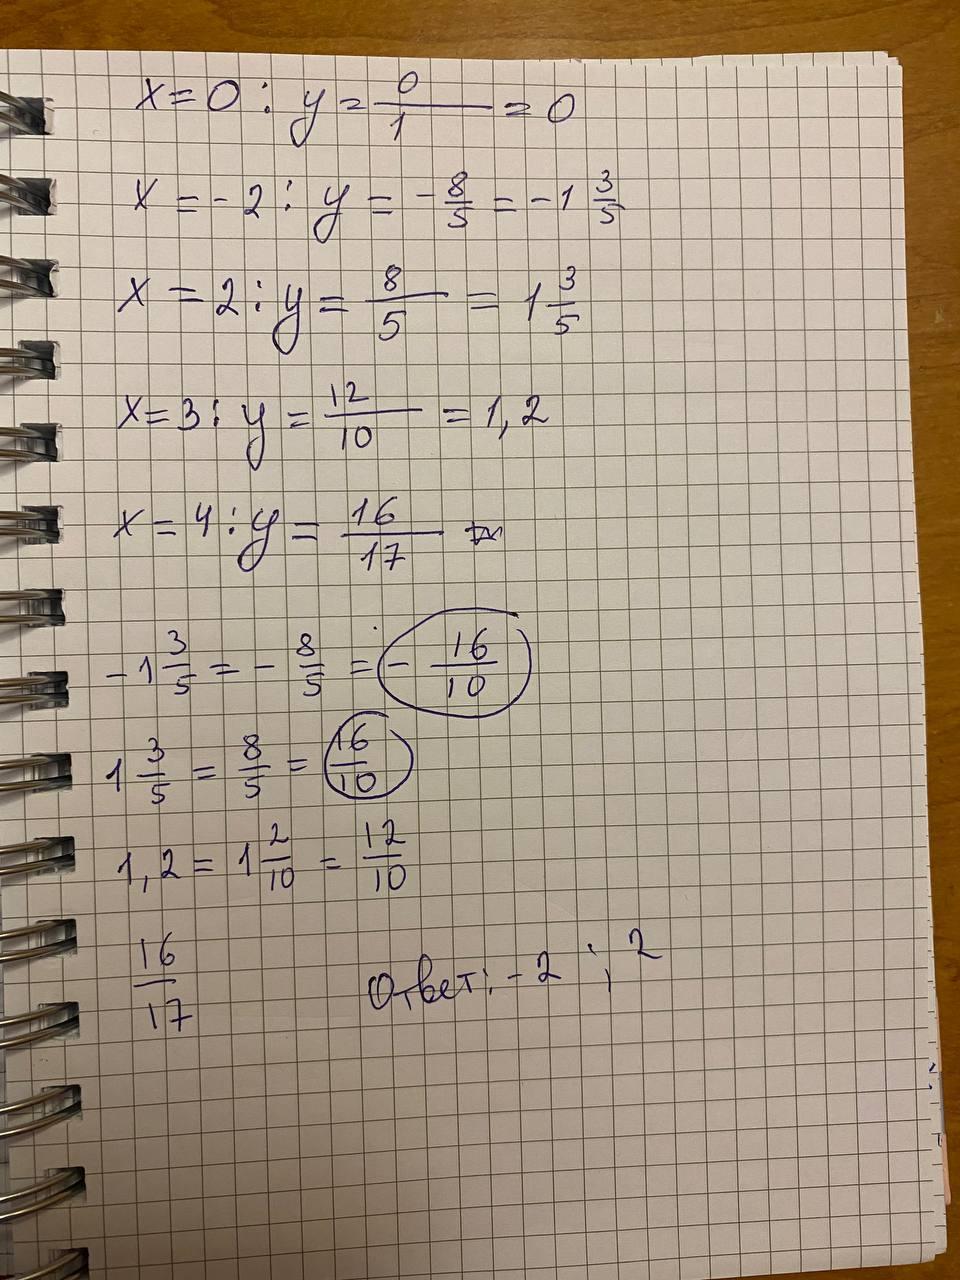 x = 0 : y = 0/1 = 0
x = -2 : y = -8/5 = -1 3/5
x = 2 : y = 8/5 = 1 3/5
x = 3 : y = 12/10 = 1,2
x = 4 : y = 16/17
-1 3/5 = -8/5 = -16/10
1 3/5 = 8/5 = 16/10
1,2 = 1 2/10 = 12/10
16/17
Ответ: -2 ; 2